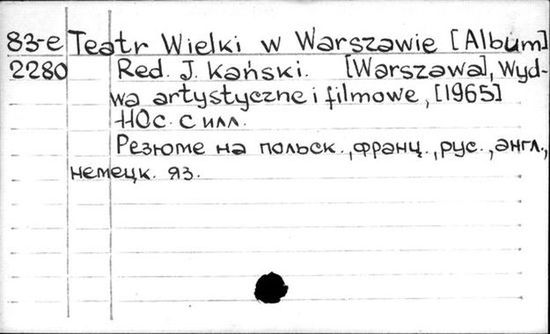 83-е Teatr Wielki w Warszawie [Album]
2280 Red. J. Kański. [Warszawa], Wyd-
wa artystyczne i filmowe, [1965]
110с. с илл.
Резюме на польск., франц., рус., англ.,
немецк. яз.